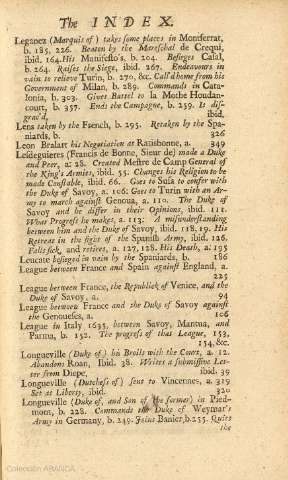 The INDEX.
Leganez (Marquis of) takes some places in Montferrat,
b. 185, 226. Beaten by the Mareschal de Crequi,
ibid. 164. His Manifesto's, b. 204. Besieges Casal,
b. 264. Raises the Siege, ibid. 267. Endeavours in
vain to relieve Turin, b. 270, &c. Call'd home from his
Government of Milan, b. 289. Commands in Cata-
lonia, b. 303. Gives Battel to la Mothe Houdan-
court, b. 357. Ends the Campagne, b. 359. Is dis-
grac'd, ibid.
Lens taken by the French, b. 295. Retaken by the Spa-
niards, b. 326
Leon Brulart his Negotiation at Ratisbonne, a. 349
Lesdeguieres (Francis de Bonne, Sieur de) made a Duke
and Peer, a. 28. Created Mestre de Camp General of
the King's Armies, ibid. 55. Changes his Religion to be
made Constable, ibid. 66. Goes to Susa to confer with
the Duke of Savoy, a. 106. Goes to Turin with an Ar-
my to march against Genoua, a. 110. The Duke of
Savoy and he differ in their Opinions, ibid. 111.
What Progress he makes, a. 113. A misunderstanding
between him and the Duke of Savoy, ibid. 118, 19. His
Retreat in the sight of the Spanish Army, ibid. 126.
Falls sick, and retires, a. 127, 128. His Death, a. 195
Leucate besieged in vain by the Spaniards, b. 186
League between France and Spain against England, a.
225
League between France, the Republick of Venice, and the
Duke of Savoy, a. 94
League between France and the Duke of Savoy against
the Genoueses, a. 106
League in Italy 1635, between Savoy, Mantua, and
Parma, b. 152. The progress of that League, 153,
154, &c.
Longueville (Duke of) his Broils with the Court, a. 12.
Abandons Roan, Ibid. 38. Writes a submissive Let-
ter from Diepe, ibid. 39
Longueville (Dutchess of) sent to Vincennes, a. 319
Set at Liberty, ibid. 320
Longueville (Duke of, and Son of the former) in Pied-
mont, b. 228. Commands the Duke of Weymar's
Army in Germany, b. 249. Joins Banier, b. 255. Quits
the
Colección ABANDA